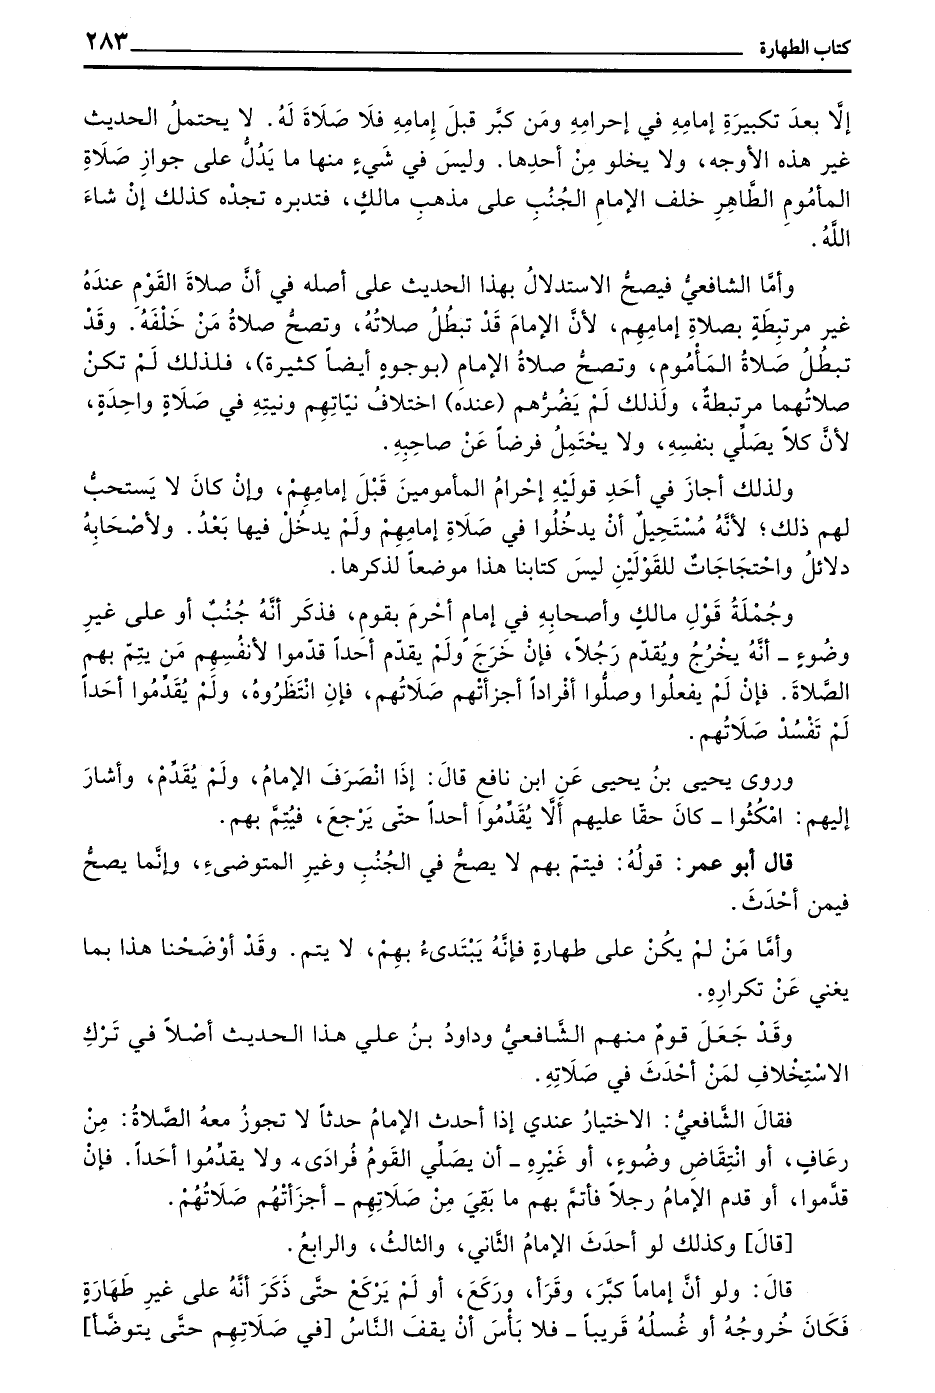 كتاب الطهارة ٢٨٣
إلَّا بعدَ تكبيرَةِ إمامِهِ في إحرامِهِ ومَن كبَّر قبلَ إمامِهِ فلَا صَلَاةَ لَهُ. لا يحتملُ الحديث
غير هذه الأوجه، ولا يخلو مِنْ أحدِها. وليسَ في شَيءٍ منها ما يَدُلُّ على جوازِ صَلَاةِ
المأمُومِ الطَّاهِرِ خلف الإمامِ الجُنُبِ على مذهبِ مالكٍ، فتدبره تجدْه كذلك إنْ شاءَ
اللَّهُ.
وأمَّا الشافعيُّ فيصحُّ الاستدلالُ بهذا الحديث على أصله في أنَّ صلاةَ القَوْمِ عندَهُ
غير مرتبِطَةٍ بصلاةِ إمامِهم، لأنَّ الإمامَ قَدْ تبطُلُ صلاتُهُ، وتصحُّ صلاةُ مَنْ خَلْفَهُ. وقَدْ
تبطُلُ صَلَاةُ المَأْمُوم، وتصحُّ صلاةُ الإمام (بوجوهٍ أيضاً كثيرة)، فلذلك لَمْ تكنْ
صلاتُهما مرتبطةٌ، ولَذلك لَمْ يَضُرُّهم (عنده) اختلافُ نيّاتِهِم ونيتِهِ في صَلَاةٍ واحِدَةٍ،
لأنَّ كلاً يصَلِّي بنفسِهِ، ولا يحْتَمِلُ فرضاً عَنْ صاحِبِهِ.
ولذلك أجازَ في أحَدِ قوليْهِ إحْرامُ المأمومينَ قَبْلَ إمامِهِمْ، وإنْ كانَ لا يَستحبُّ
لهم ذلك؛ لأنَّهُ مُسْتَحِيلٌ أنْ يدخُلُوا في صَلَاةِ إمامِهِمْ ولَمْ يدخُلْ فيها بَعْدُ. ولأصْحَابِهُ
دلائلُ واحْتجَاجَاتٌ للقَوْلَيْنِ ليسَ كتابنا هذا موضعاً لذكرها.
وجُمْلَةُ قَوْلِ مالكٍ وأصحابِهِ في إمامٍ أحْرمَ بقوم، فذكَر أنَّهُ جُنُبٌ أو على غيرِ
وضُوءٍ ـ أنَّهُ يخْرُجُ ويُقدّم رَجُلاً، فإنْ خَرَجَ ولَمْ يقدّم أحداً قدّموا لأنفُسِهِم مَن يتِمّ بهم
الصَّلاةَ. فإنْ لَمْ يفعلُوا وصلُّوا أفْراداً أجزأتْهم صَلَاتُهم، فإنِ انْتَظَرُوهُ، ولَمْ يُقَدِّمُوا أحَداً
لَمْ تَفْسُدْ صَلَاتُهم.
وروى يحيى بنُ يحيى عَنِ ابن نافع قالَ: إذَا انْصَرَفَ الإمامُ، ولَمْ يُقَدِّمْ، وأشارَ
إليهم: امْكُثُوا ـ كانَ حقّا عليهم ألَّا يُقَدِّمُوا أحداً حتّى يَرْجعَ، فيُتِمَّ بهم.
قال أبو عمر: قولُهُ: فيتمّ بهم لا يصحُّ في الجُنُبِ وغيرِ المتوضىءِ، وإنَّما يصحُّ
فيمن أحْدَثَ.
وأمَّا مَنْ لمْ يكُنْ على طهارةٍ فإنَّهُ يَبْتَدىءُ بهِمْ، لا يتم. وقَدْ أوْضَحْنا هذا بما
يغني عَنْ تكرارِهِ.
وقَدْ جَعَلَ قومٌ منهم الشَّافعيُّ وداودُ بنُ علي هذا الحديث أصْلاً في تَرْكِ
الاسْتِخْلافِ لمَنْ أحْدَثَ في صَلَاتِهِ.
فقالَ الشَّافعيُّ: الاختيارُ عندي إذا أحدث الإمامُ حدثاً لا تجوزُ معهُ الصَّلاةُ: مِنْ
رعَافٍ، أو انْتِقَاضِ وضُوءٍ، أو غَيْرِهِ ـ أن يصَلِّي القَومُ فُرادَى، ولا يقدِّمُوا أحَداً. فإنْ
قدَّموا، أو قدم الإمامُ رجلاً فأتمَّ بهم ما بَقِيَ مِنْ صَلَاتِهِم ـ أجزَأتْهُم صَلَاتُهُمْ.
[قالَ] وكذلك لو أحدَثَ الإمامُ الثَّاني، والثالثُ، والرابعُ.
قالَ: ولو أنَّ إماماً كبَّرَ، وقَرَأ، وركَعَ، أو لَمْ يَرْكَعْ حتَّى ذَكَرَ أنَّهُ على غيرِ طَهَارَةٍ
فَكَانَ خُروجُهُ أو غُسلُهُ قَريباً ـ فلا بَأسَ أنْ يقفَ النَّاسُ [في صَلَاتِهِم حتَّى يتوضَّأ]